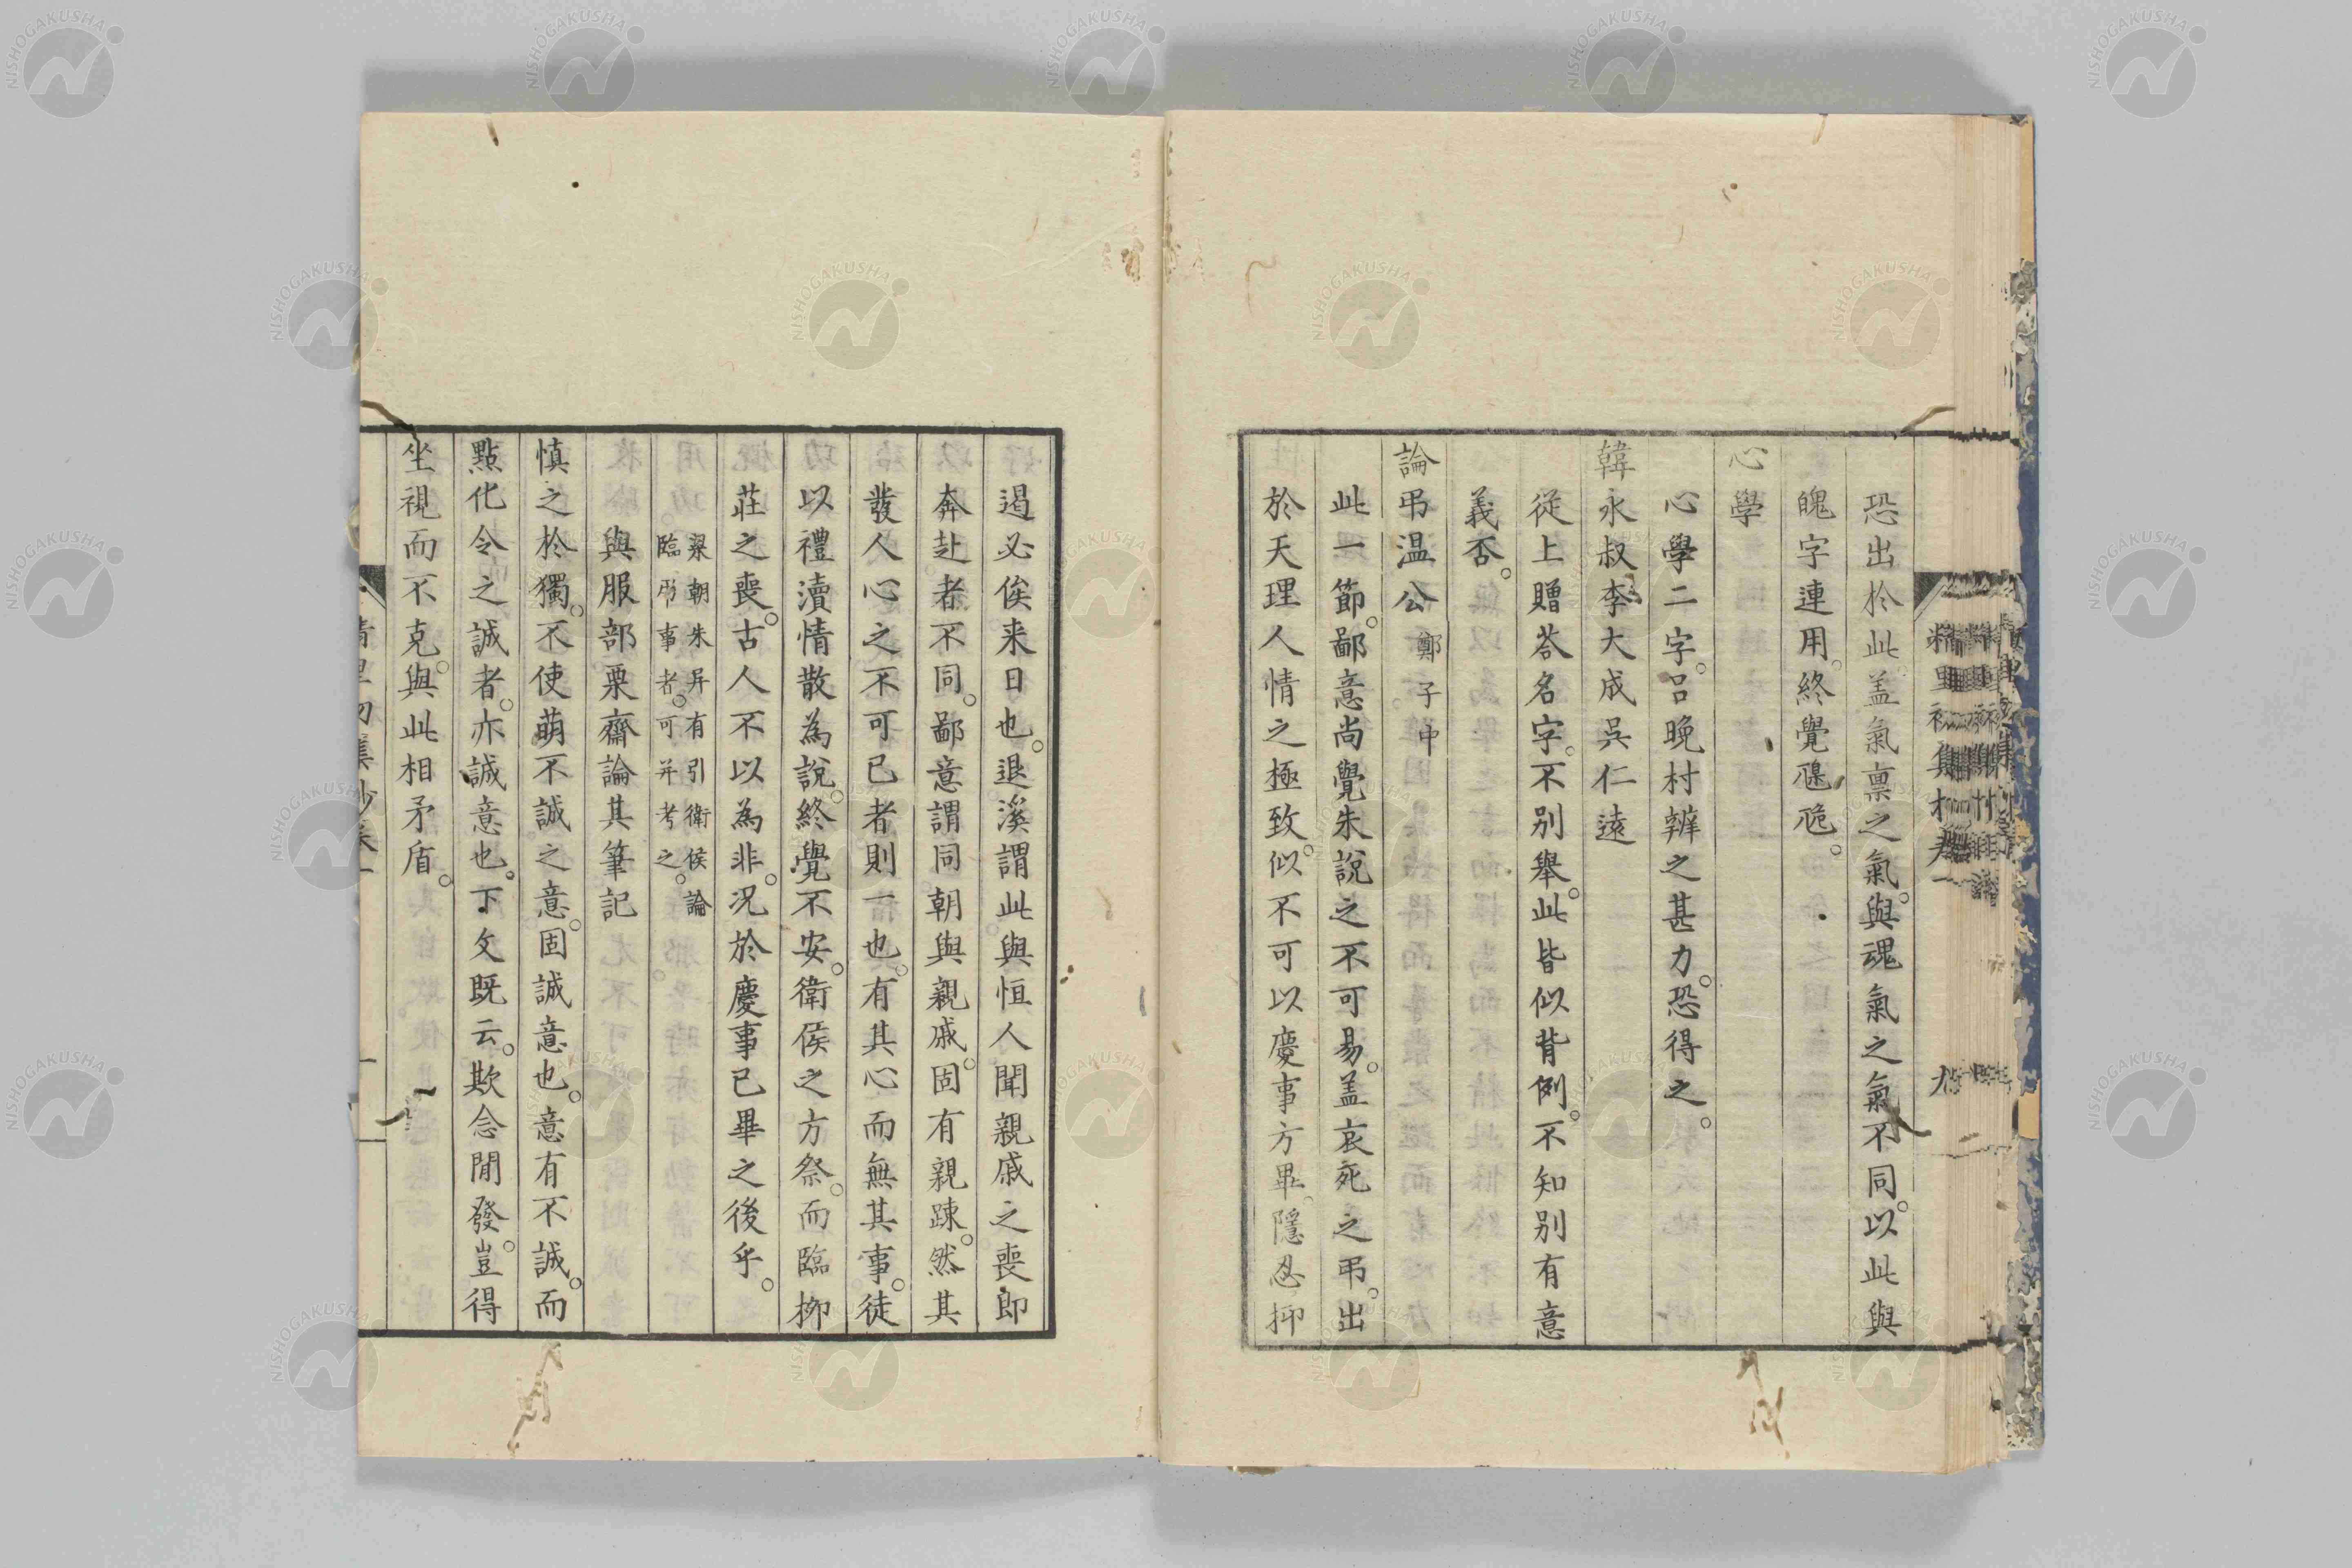 恐出於此盖氣禀之氣。與魂氣之氣不同。以此與
魄字連用。終覺𨹟𨹟。
心學
心學二字。呂晚村辨之甚力。恐得之。
韓永叔李大成吳仁遠
從上贈荅名字。不別舉。此皆似背例。不知別有意
義否。
論弔温公 鄭子中
此一節。鄙意尚覺朱說之不可易。盖哀死之弔。出
於天理人情之極致。似不可以慶事方畢。隱忍抑
遏必俟来日也。退溪謂此與恒人聞親戚之喪。即
奔赴者不同。鄙意謂同朝與親戚。固有親踈。然其
發人心之不可已者則一也。有其心而無其事。徒
以禮瀆情散為說。終覺不安。衛侯之方祭。而臨柳
莊之喪。古人不以為非。况於慶事已畢之後乎。
梁朝朱异有引衛侯論
臨弔事者。可并考之。
與服部栗齋論其筆記
慎之於獨。不使萌不誠之意。固誠意也。意有不誠。而
點化令之誠者。亦誠意也。下文既云。欺念間發。豈得
坐視而不克。與此相矛盾。